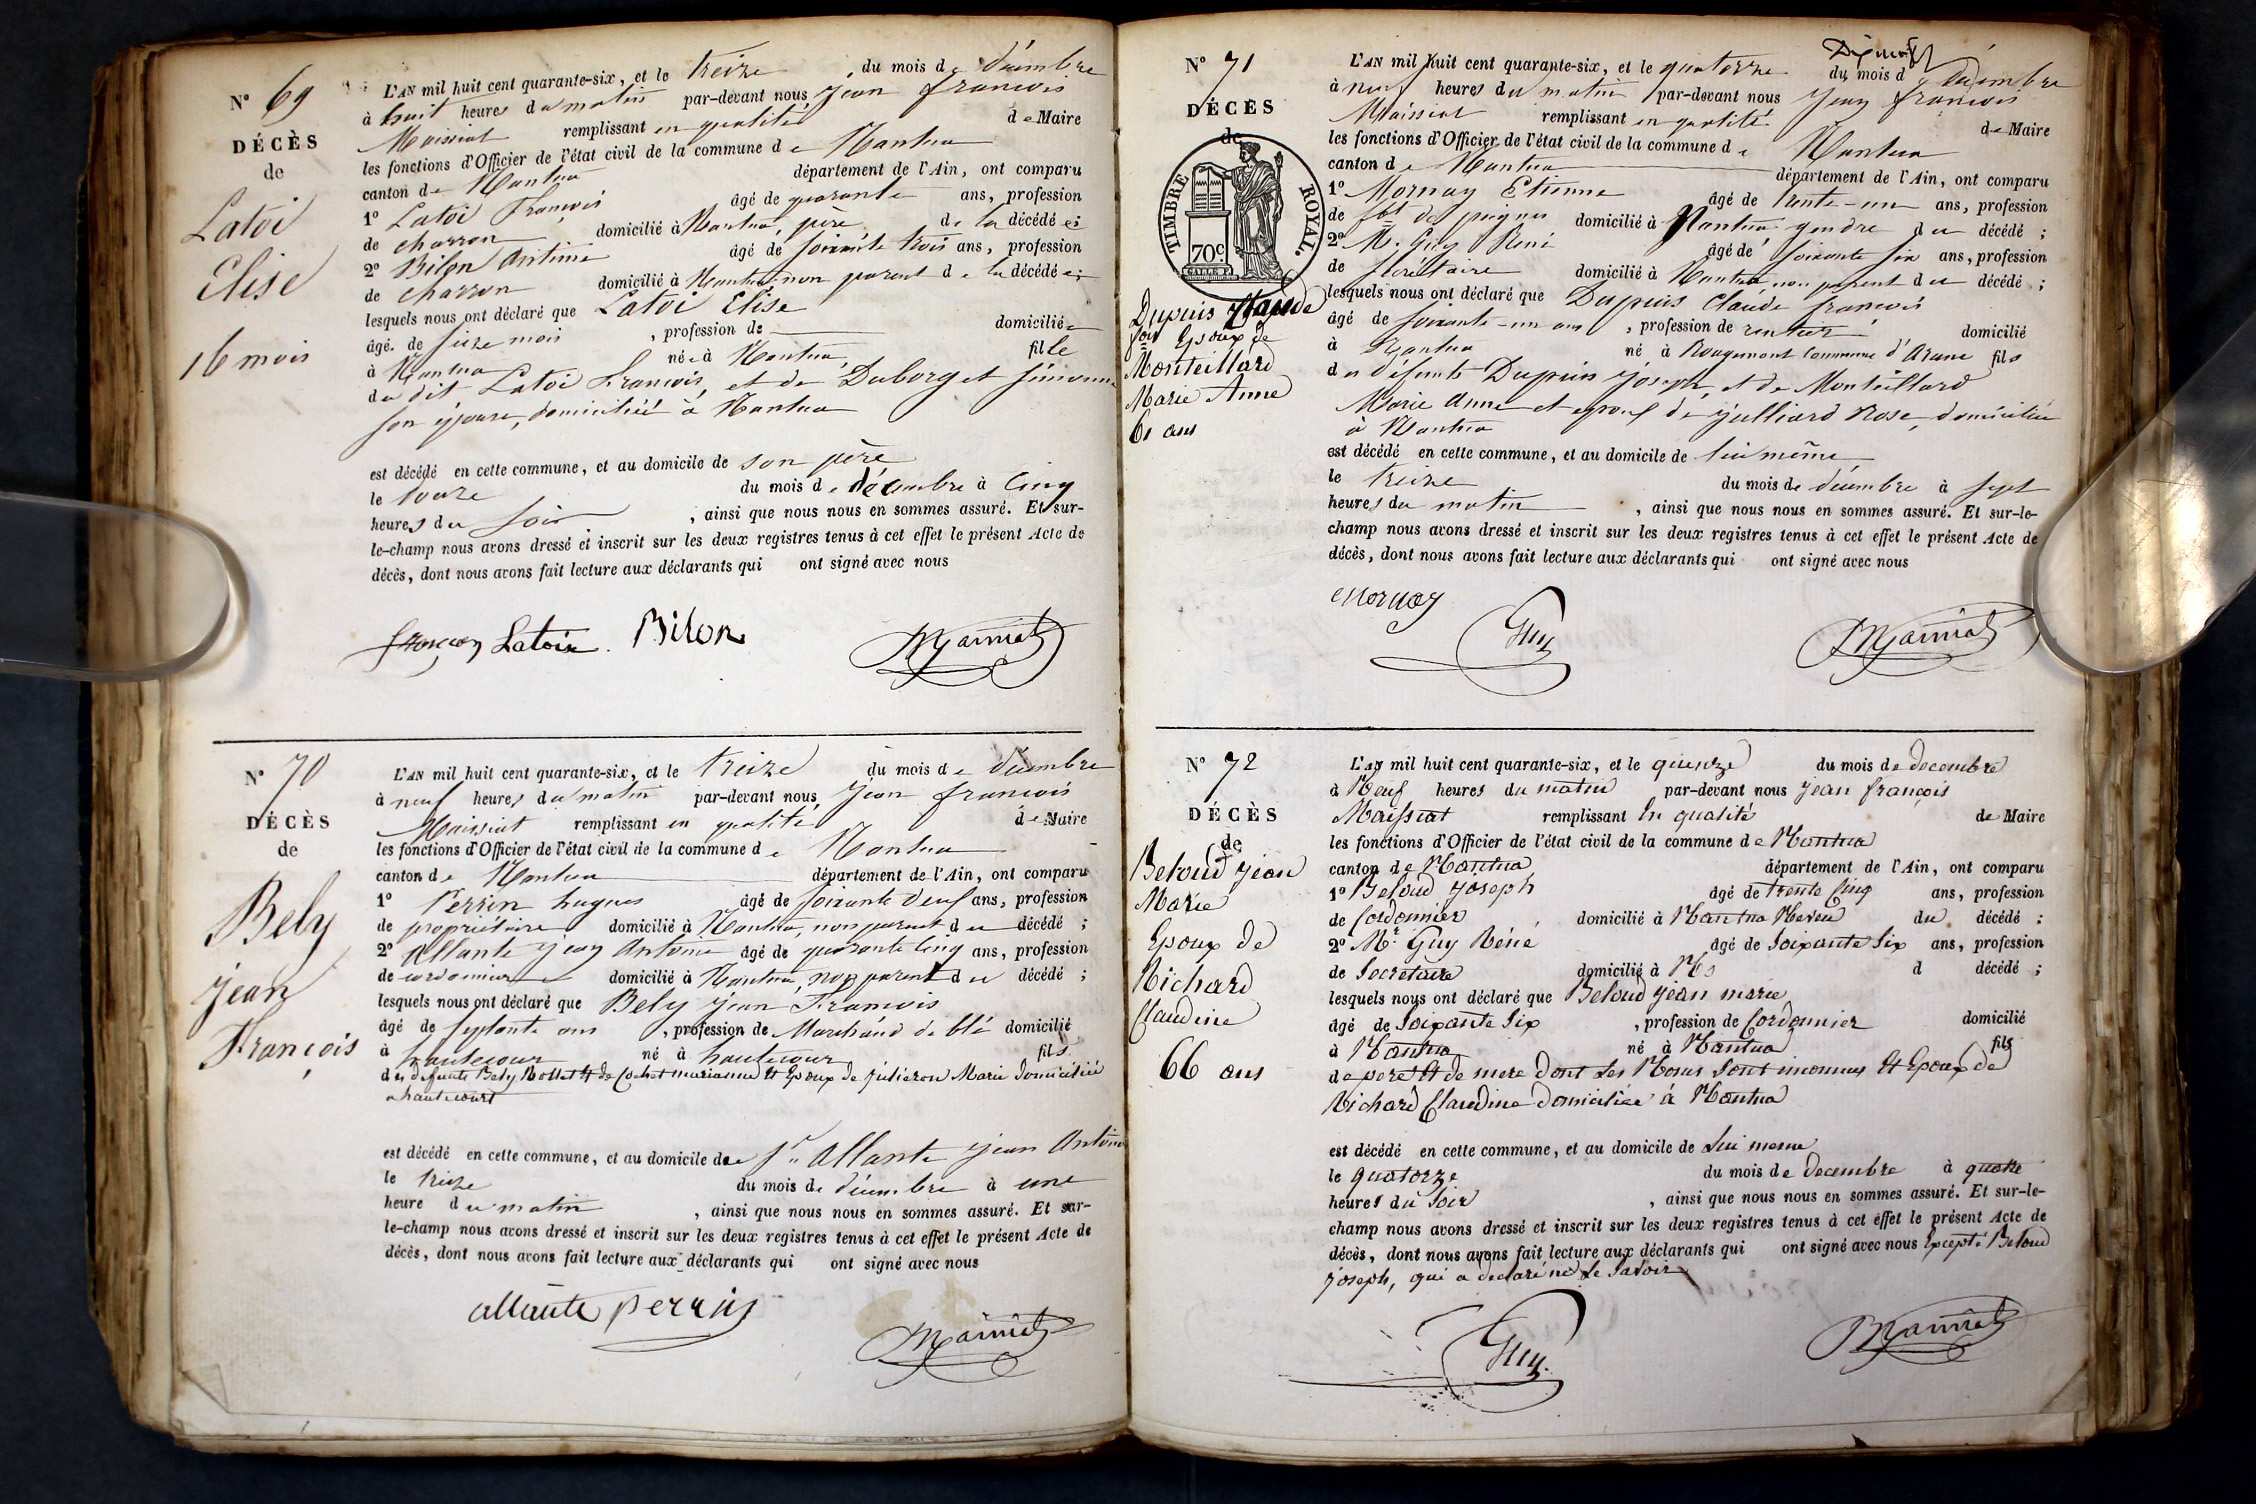 N° 69
DÉCÈS
de
Latoi
Elise
16 mois
L'AN mil huit cent quarante-six, et le treize du mois de décembre
à huit heures du matin par-devant nous jean françois
Maissiat remplissant en qualité de Maire
les fonctions d'Officier de l'état civil de la commune de Nantua
canton de Nantua département de l'Ain, ont comparu
1° Latoi François âgé de quarante ans, profession
de charron domicilié à Nantua, père de la décédée ;
2° Bilon Antime âgé de soixante trois ans, profession
de charron domicilié à Nantua non parent de la décédée ;
lesquels nous ont déclaré que Latoi Elise
âgé. de seize mois , profession de domiciliée
à Nantua née à Nantua fille
du dit Latoi François, et de Duborget simonne
son épouse, domiciliée à Nantua
est décédé en cette commune, et au domicile de son père
le douze du mois de décembre à cinq
heures du soir , ainsi que nous nous en sommes assuré. Et sur-
le-champ nous avons dressé et inscrit sur les deux registres tenus à cet effet le présent Acte de
décès, dont nous avons fait lecture aux déclarants qui ont signé avec nous
françois Latoix Bilon Maissiat
N° 70
DÉCÈS
de
Bely
jean
François
L'AN mil huit cent quarante-six, et le treize du mois de décembre
à neuf heures du matin par-devant nous jean françois
Maissiat remplissant en qualité de Maire
les fonctions d'Officier de l'état civil de la commune de Nantua
canton de Nantua département de l'Ain, ont comparu
1° Perrin hugues âgé de soixante deux ans, profession
de propriétaire domicilié à Nantua, non parent du décédé ;
2° Allante jean Antoine âgé de quarante cinq ans, profession
de cordonnier domicilié à Nantua, non parent du décédé ;
lesquels nous ont déclaré que Bely jean François
âgé de septante ans , profession de Marchand de blé domicilié
à hautecour né à hautecour fils
des defunts Bely Rollet et de Cochet marianne et Epoux de julieron Marie Domiciliée
a hautecourt
est décédé en cette commune, et au domicile de sr. Allante jean Antoine
le treize du mois de décembre à une
heure du matin , ainsi que nous nous en sommes assuré. Et sur-
le-champ nous avons dressé et inscrit sur les deux registres tenus à cet effet le présent Acte de
décès, dont nous avons fait lecture aux déclarants qui ont signé avec nous
allante perrin Maissiat
N° 71
DÉCÈS
de
TIMBRE ROYAL.
70c.
Dupuis Claude
fois Epoux de
Monteillard
Marie Anne
61 ans
L'AN mil huit cent quarante-six, et le quatorze du mois de décembre
à neuf heures du matin par-devant nous jean françois
Maissiat remplissant en qualité de Maire
les fonctions d'Officier de l'état civil de la commune de Nantua
canton de Nantua département de l'Ain, ont comparu
1° Mornay Etienne âgé de trente-un ans, profession
de fbt de peignes domicilié à Nantua gendre du décédé ;
2° M. Guy René âgé de soixante six ans, profession
de secrétaire domicilié à Nantua non parent du décédé ;
lesquels nous ont déclaré que Dupuis Claude françois
âgé de soixante-un ans , profession de rentier domicilié
à Nantua né à Rougemont commune d'Arane fils
des défunts Dupuis joseph, et de Monteillard
Marie Anne et epoux de julliard Rose, domiciliée
à Nantua
est décédé en cette commune, et au domicile de lui même
le treize du mois de décembre à sept
heures du matin , ainsi que nous nous en sommes assuré. Et sur-le-
champ nous avons dressé et inscrit sur les deux registres tenus à cet effet le présent Acte de
décès, dont nous avons fait lecture aux déclarants qui ont signé avec nous
Mornay Guy Maissiat
N° 72
DÉCÈS
de
Beloud jean
Marie
Epoux de
Richard
Claudine
66 ans
L'AN mil huit cent quarante-six, et le quinze du mois de decembre
à Neuf heures du matin par-devant nous jean françois
Maissiat remplissant En qualité de Maire
les fonctions d'Officier de l'état civil de la commune de Nantua
canton de Nantua département de l'Ain, ont comparu
1° Beloud joseph âgé de trente cinq ans, profession
de cordonnier domicilié à Nantua Neveu du décédé ;
2° Mr. Guy Réné âgé de Soixante Six ans, profession
de Secretaire domicilié à d décédé ;
lesquels nous ont déclaré que Beloud jean marie
âgé de Soixante Six , profession de Cordonnier domicilié
à Nantua né à Nantua fils
de pere et de mere dont les Noms Sont inconnus Et Epoux de
Richard Claudine Domiciliée à Nantua
est décédé en cette commune, et au domicile de lui meme
le quatorze du mois de decembre à quatre
heures du Soir , ainsi que nous nous en sommes assuré. Et sur-le-
champ nous avons dressé et inscrit sur les deux registres tenus à cet effet le présent Acte de
décès, dont nous avons fait lecture aux déclarants qui ont signé avec nous Excepté Beloud
joseph, qui a declaré ne le Savoir
Guy Maissiat